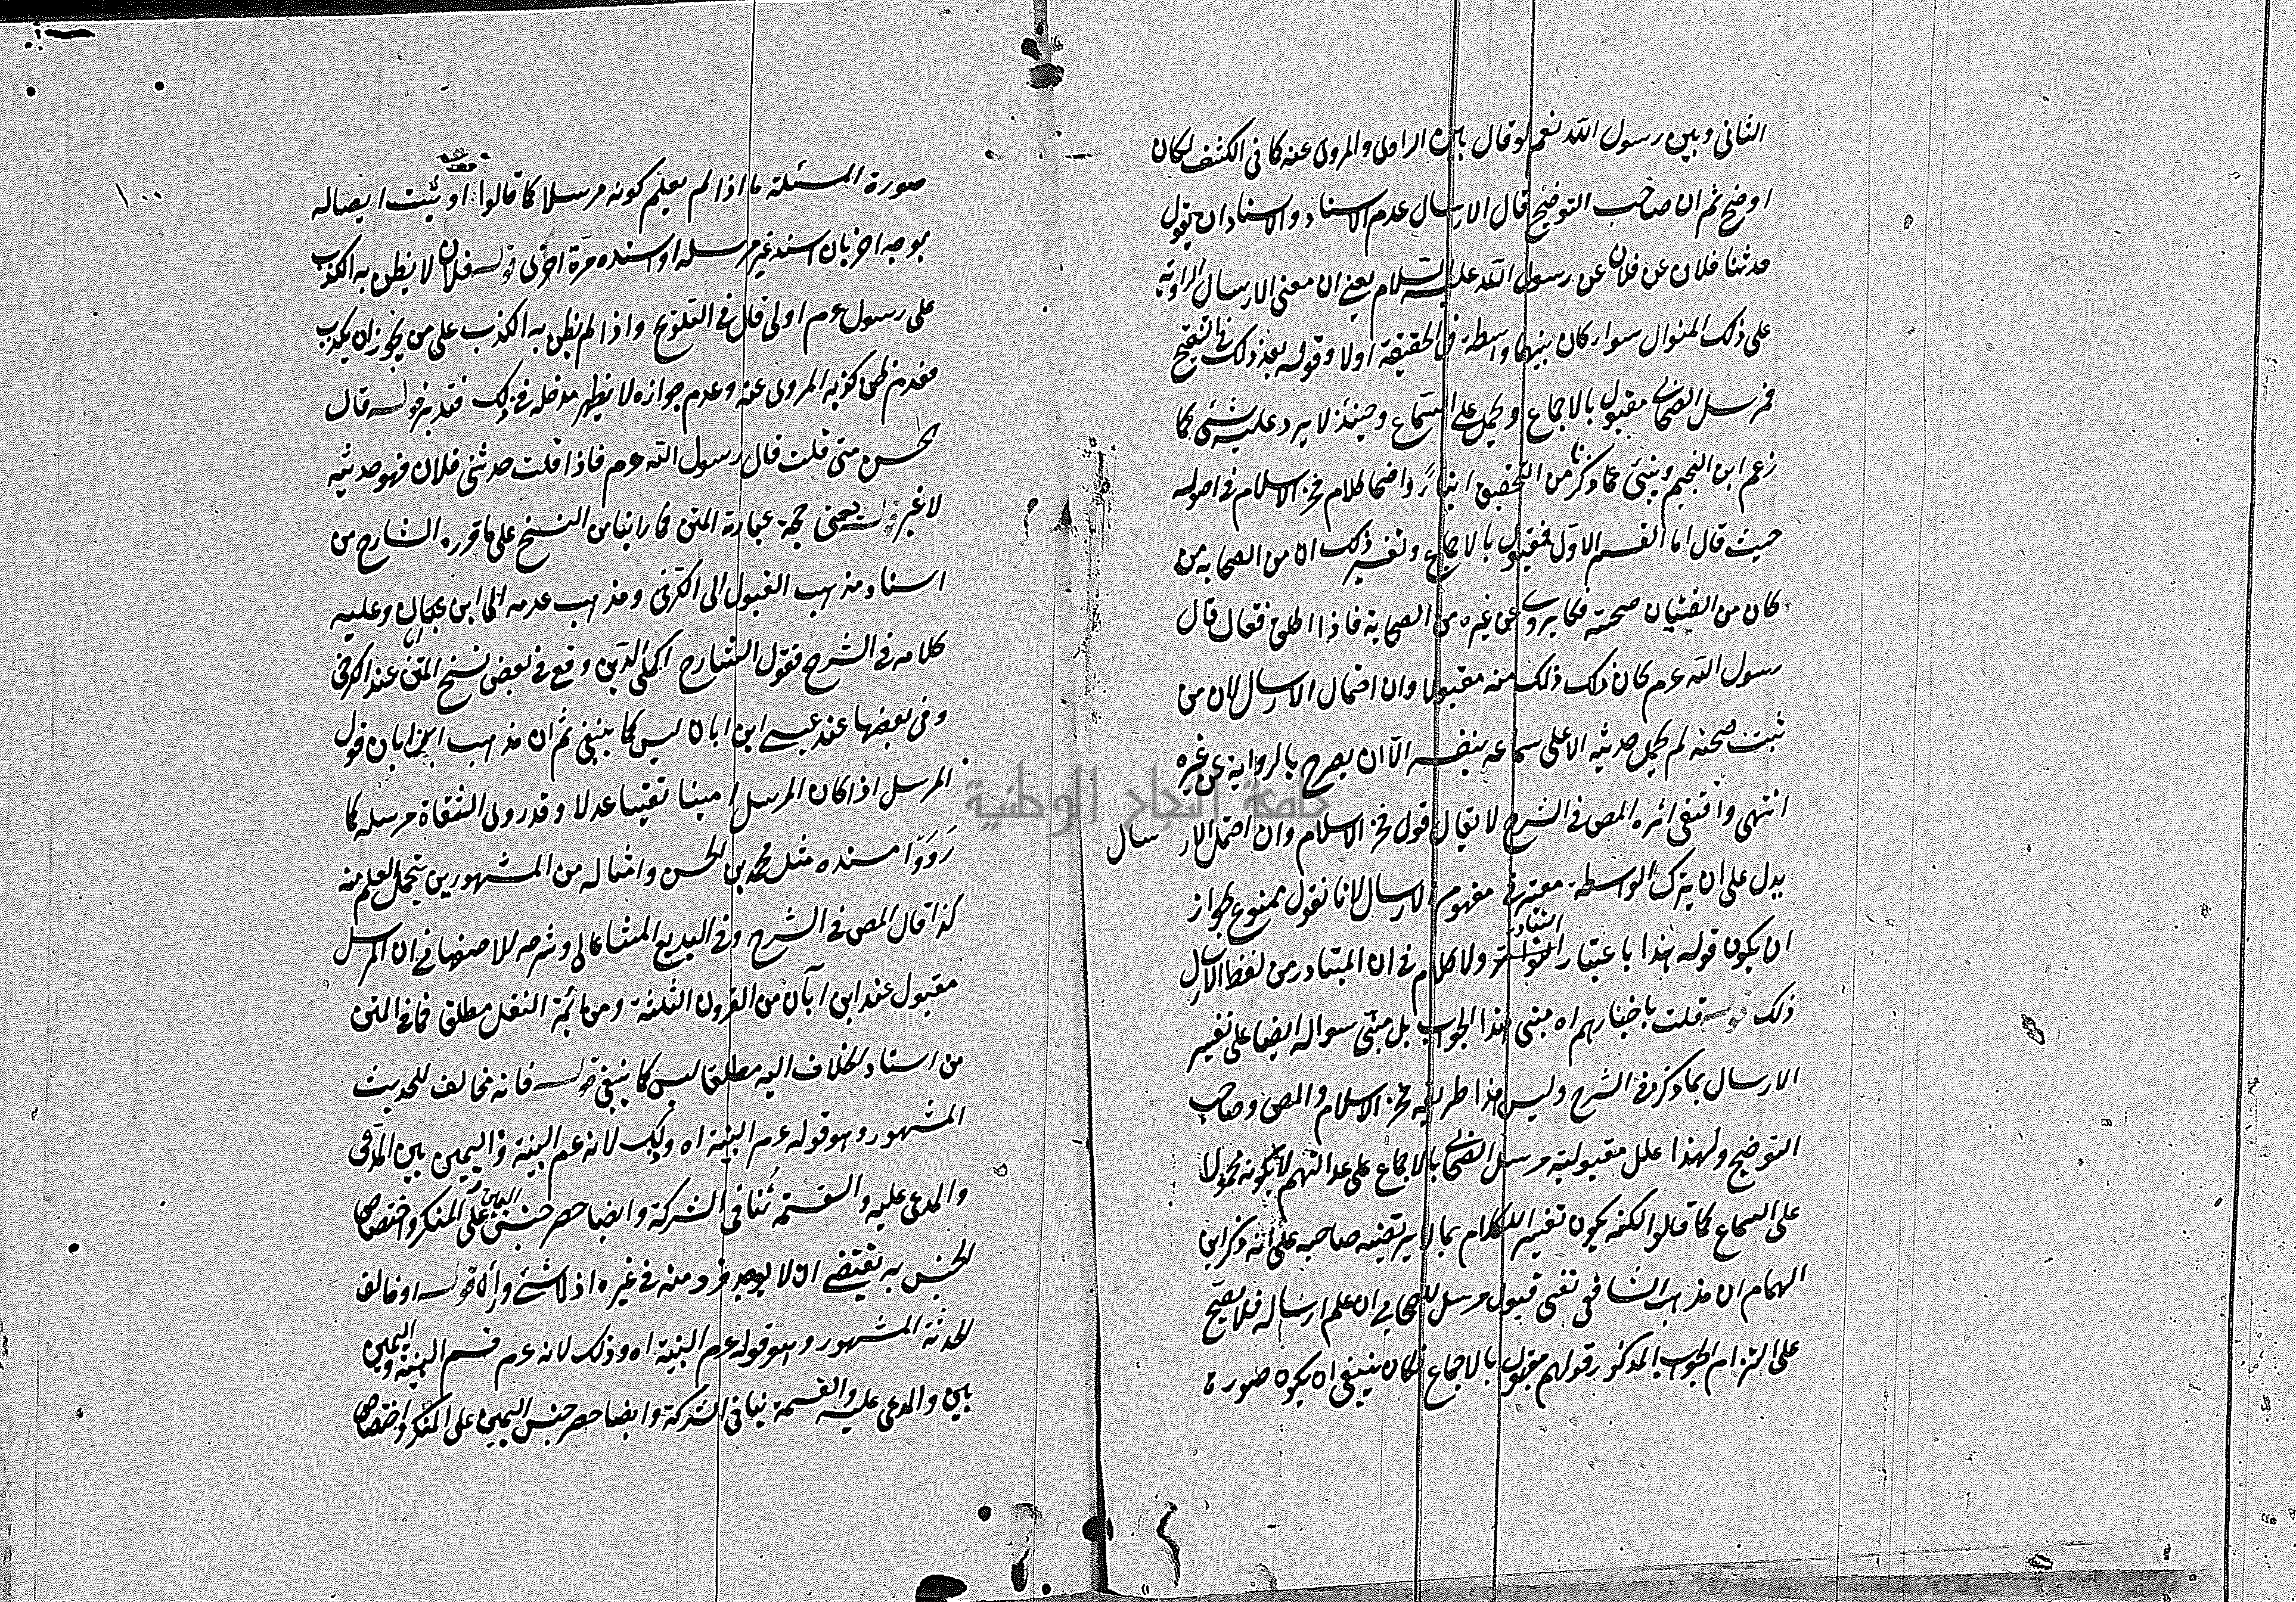 الثانى وبين رسول الله نعم لو قال بين الراوى والمروى عنه كما فى الكشف لكان
اوضح ثم ان صاحب التوضيح قال الارسال عدم الاسناد والاسناد ان يقول
حدثنا فلان عن فلان عن رسول الله عليه السلام يعنى ان معنى الارسال الرواية
على ذلك المنوال سواء كان بينهما واسطة فى الحقيقة اولا وقوله بعد ذلك فى التنقيح
فمرسل الصحابى مقبول بالاجماع ويحمل على السماع وحينئذ لا يرد عليه شئ كما
زعم ابن النجيم وينبئ عما ذكرنا من التحقيق انباء واضحا كلام فخر الاسلام فى اصوله
حيث قال اما القسم الاول فمقبول بالاجماع وتفسير ذلك ان من الصحابه من
كان من الفتيان صحبته فكان يروى عن غيره من الصحابة فاذا اطلق فقال قال
رسول الله عم كان ذلك ذلك منه مقبولا وان احتمال الارسال لان من
ثبت صحبته لم يحمل حديثه الا على سماعه بنفسه الا ان يصرح بالرواية عن غيره
انتهى واقتفى اثره المص فى الشرح لا يقال قول فخر الاسلام وان احتمل الار سال
يدل على ان ترك الواسطة معتبر فى مفهوم الارسال لانا نقول ممنوع لجواز
ان يكون قوله هذا باعتبار المتبادر ولا كلام فى ان المتبادر من لفظ الارسال
ذلك قوله قلت باخبارهم اه مبنى هذا الجواب بل مبنى سواله ايضا على تفسير
الارسال بما ذكر فى الشرح وليس هذا طريقة فخر الاسلام والمص وصاحب
التوضيح ولهذا علل مقبولية مرسل الصحابى بالاجماع على عدالتهم لا بكونه محمولا
على السماع كما قالوا لكنه يكون تفسير الكلام بما لا يرتضيه صاحبه على انه ذكر ابن
الهمام ان مذهب الشافعى نفى قبول مرسل الصحابى ان علم ارساله فلا يصح
على التزام الجواب المذكور قولهم مقبول بالاجماع فكان ينبغى ان يكون صورة
١٠٠
صورة المسئلة ما اذا لم يعلم كونه مرسلا كما قالوا اوثبت ايصاله
بوجه اخر بان اسند غير مرسله او اسنده مرة اخرى قوله فلان لا يظن به الكذب
على رسول عم اولى قال فى التلويح واذا لم يظن به الكذب على من يجوز ان يكذب
فعدم ظن كذبه المروى عنه وعدم جوازه لا يظهر مدخله فى ذلك فتدبر قوله قال
الحسن متى قلت قال رسول الله عم فاذا قلت حدثنى فلان فهو حديثه
لا غير قوله يعنى حجة عبارة المتن فما راينا من النسخ على ما قوره الشارح من
اسناد مذهب القبول الى الكرخى ومذهب عدمه الى ابن ابان وعليه
كلامه فى الشرح فقول الشارح اكمل الدين وقع فى بعض نسخ المتن عند الكرخى
وفى بعضها عند عيسى ابن ابان ليس كما ينبغى ثم ان مذهب ابن ابان قبول
المرسل اذا كان المرسل امينا تقيا عدلا وقد روى الثقاة مرسله كما
رووا مسنده مثل محمد بن الحسن وامثاله من المشهورين بتحمل العلم منه
كذا قال المص فى الشرح وفى البديع المشاعاتى وشرحه للاصفهانى ان المرسل
مقبول عند ابن ابان من القرون الثلثة ومن ائمة النقل مطلق فما فى المتن
من اسناد الخلاف اليه مطلقا ليس كما ينبغى قوله فانه مخالف للحديث
المشهور وهو قوله عم البينة اه وذلك لانه عم البينة واليمين بين المدعى
والمدعى عليه والقسمة تنافى الشركة وايضا حصر جنس اليمين على المنكر واختصاص
الجنس به يقتضى ان لا يوجد فرد منه فى غيره اذ لا شئ وراء قوله او خالف
الحدثة المشهور وهو قوله عم البينة اه وذلك لانه عم قسم البينة واليمين
بين والمدعى عليه والقسمة تنافى الشركة وايضا حصر جنس اليمين على المنكر واختصاص
جامعة النجاح الوطنية